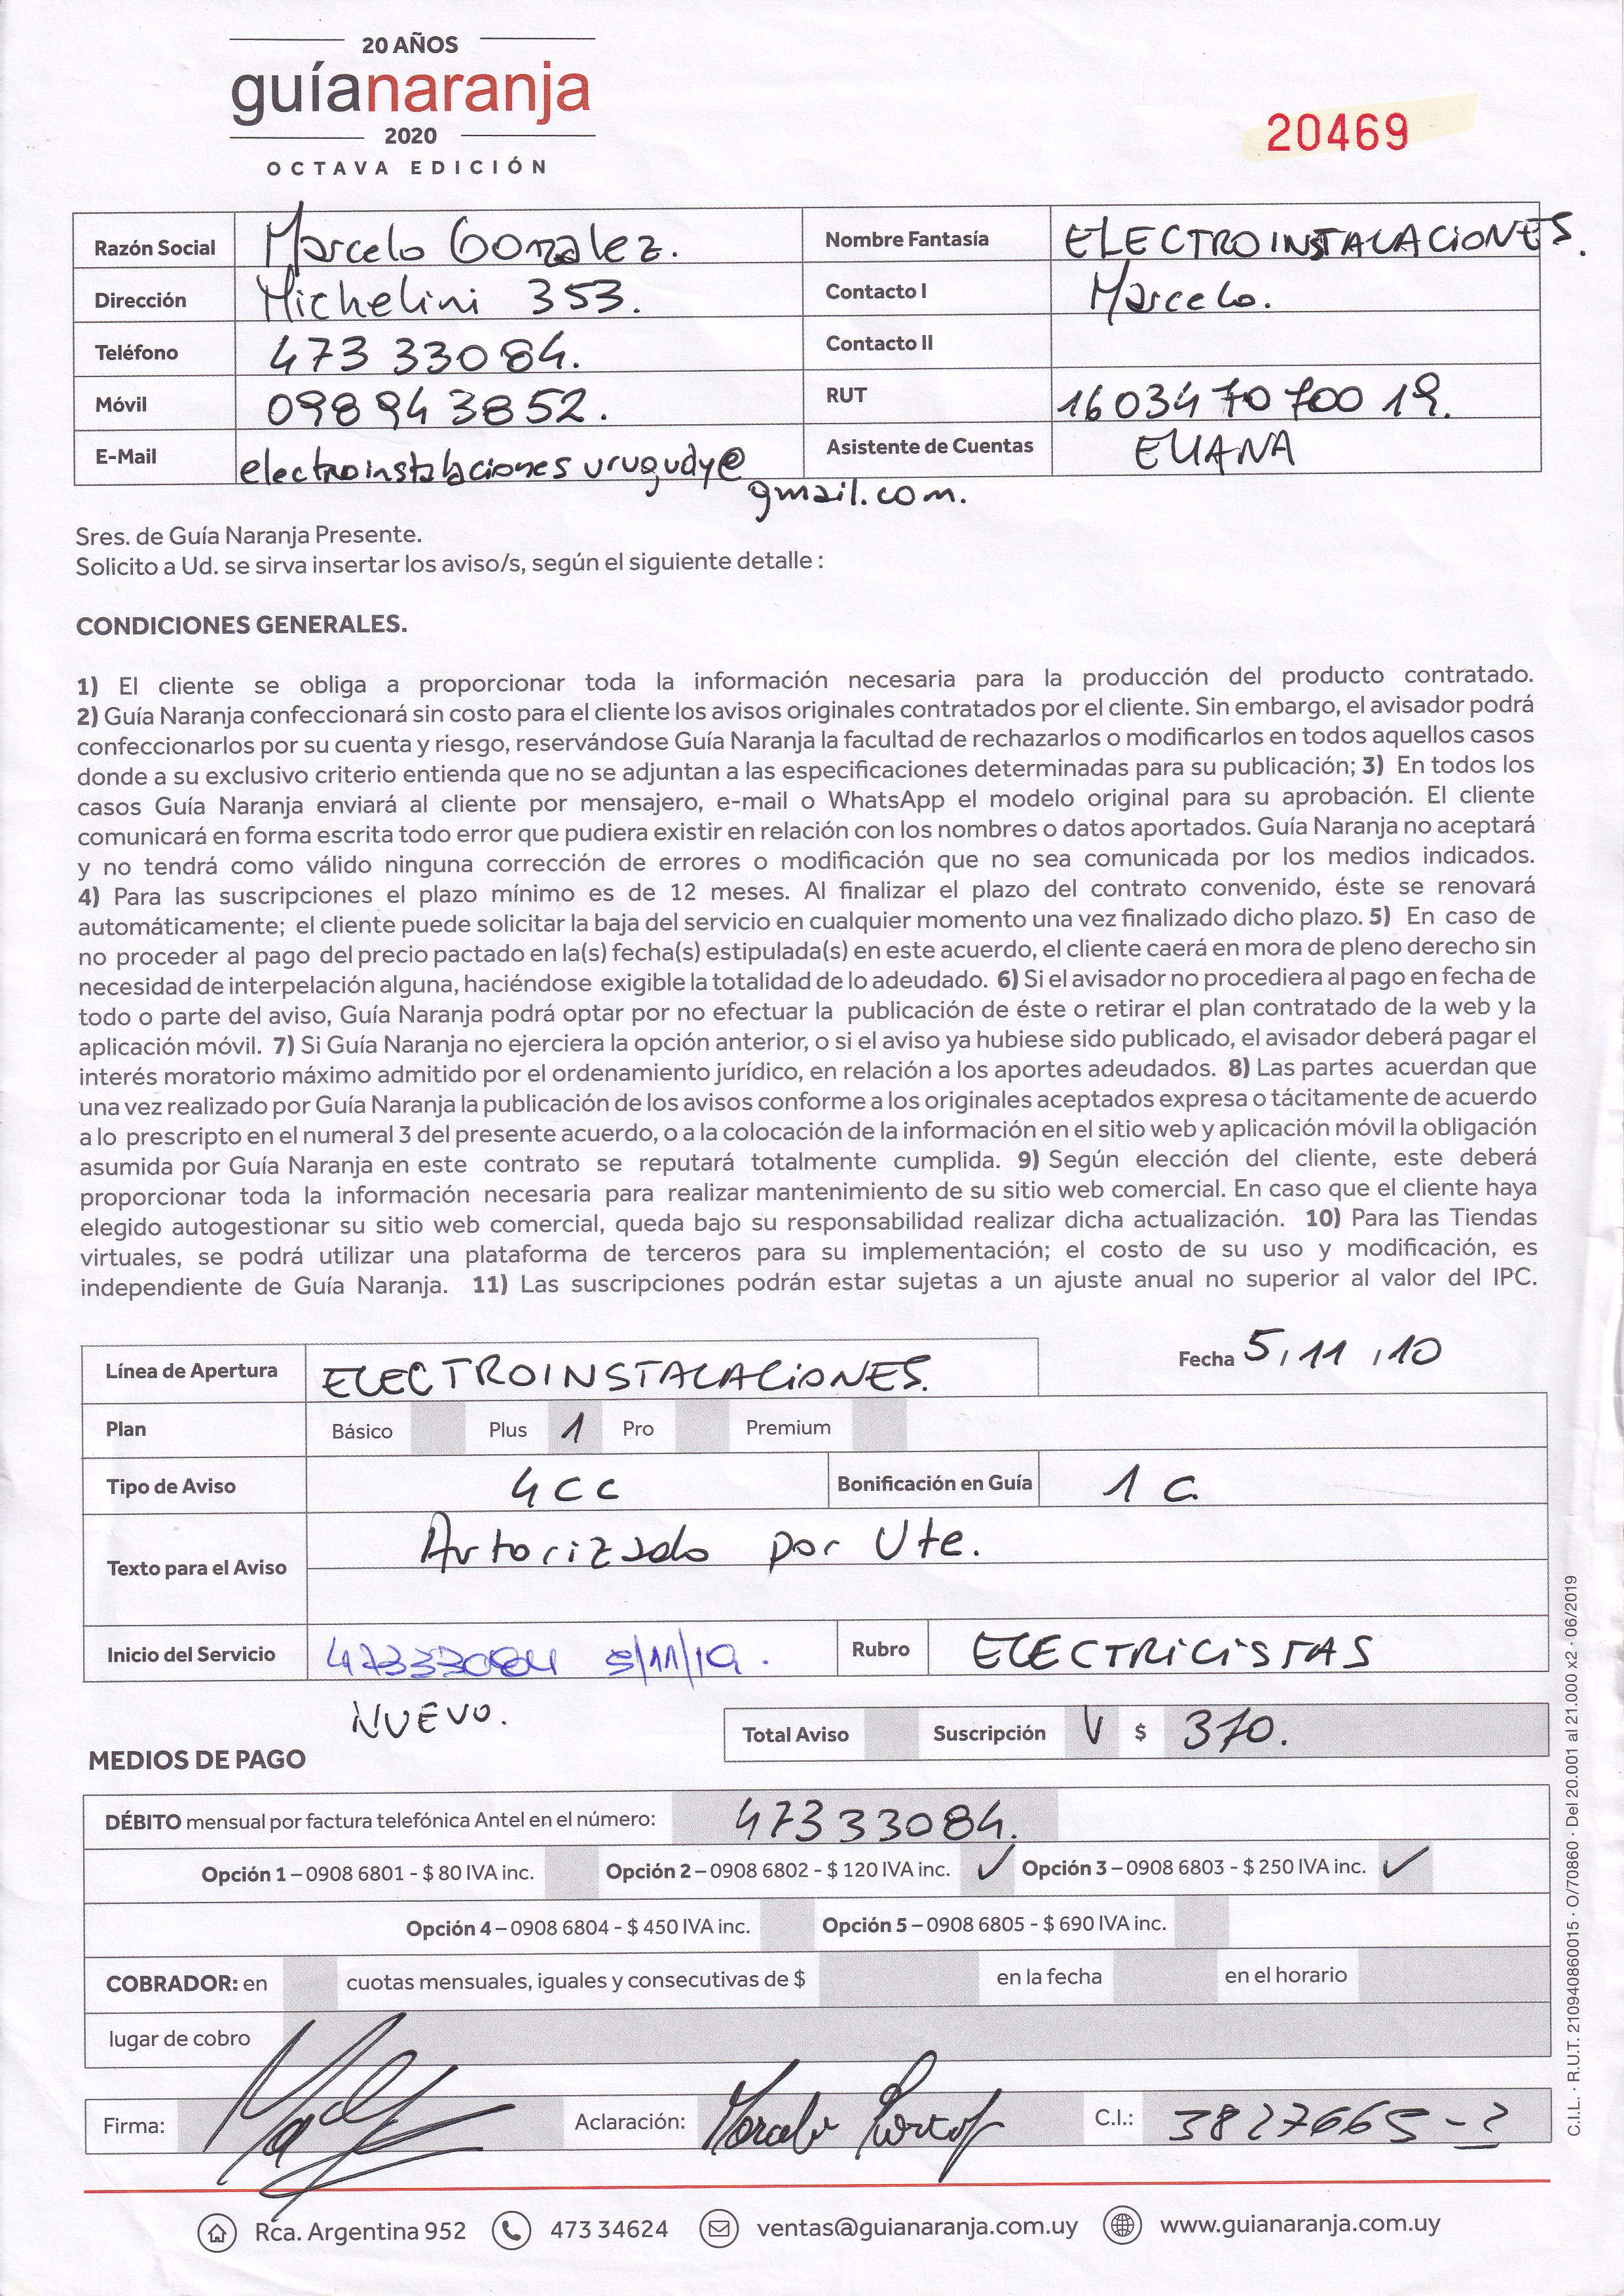 20 AÑOS
guíanaranja
2020
OCTAVA EDICIÓN
20469
Razón Social Marcelo Gonzalez. Nombre Fantasía ELECTROINSTALACIONES.
Dirección Michelini 353. Contacto I Marcelo.
Teléfono 473 33084. Contacto II
Móvil 098943852. RUT 160347070019.
E-Mail electroinstalaciones uruguay@ Asistente de Cuentas ELIANA
gmail.com.
Sres. de Guía Naranja Presente.
Solicito a Ud. se sirva insertar los aviso/s, según el siguiente detalle :
CONDICIONES GENERALES.
1) El cliente se obliga a proporcionar toda la información necesaria para la producción del producto contratado.
2) Guía Naranja confeccionará sin costo para el cliente los avisos originales contratados por el cliente. Sin embargo, el avisador podrá
confeccionarlos por su cuenta y riesgo, reservándose Guía Naranja la facultad de rechazarlos o modificarlos en todos aquellos casos
donde a su exclusivo criterio entienda que no se adjuntan a las especificaciones determinadas para su publicación; 3) En todos los
casos Guía Naranja enviará al cliente por mensajero, e-mail o WhatsApp el modelo original para su aprobación. El cliente
comunicará en forma escrita todo error que pudiera existir en relación con los nombres o datos aportados. Guía Naranja no aceptará
y no tendrá como válido ninguna corrección de errores o modificación que no sea comunicada por los medios indicados.
4) Para las suscripciones el plazo mínimo es de 12 meses. Al finalizar el plazo del contrato convenido, éste se renovará
automáticamente; el cliente puede solicitar la baja del servicio en cualquier momento una vez finalizado dicho plazo. 5) En caso de
no proceder al pago del precio pactado en la(s) fecha(s) estipulada(s) en este acuerdo, el cliente caerá en mora de pleno derecho sin
necesidad de interpelación alguna, haciéndose exigible la totalidad de lo adeudado. 6) Si el avisador no procediera al pago en fecha de
todo o parte del aviso, Guía Naranja podrá optar por no efectuar la publicación de éste o retirar el plan contratado de la web y la
aplicación móvil. 7) Si Guía Naranja no ejerciera la opción anterior, o si el aviso ya hubiese sido publicado, el avisador deberá pagar el
interés moratorio máximo admitido por el ordenamiento jurídico, en relación a los aportes adeudados. 8) Las partes acuerdan que
una vez realizado por Guía Naranja la publicación de los avisos conforme a los originales aceptados expresa o tácitamente de acuerdo
a lo prescripto en el numeral 3 del presente acuerdo, o a la colocación de la información en el sitio web y aplicación móvil la obligación
asumida por Guía Naranja en este contrato se reputará totalmente cumplida. 9) Según elección del cliente, este deberá
proporcionar toda la información necesaria para realizar mantenimiento de su sitio web comercial. En caso que el cliente haya
elegido autogestionar su sitio web comercial, queda bajo su responsabilidad realizar dicha actualización. 10) Para las Tiendas
virtuales, se podrá utilizar una plataforma de terceros para su implementación; el costo de su uso y modificación, es
independiente de Guía Naranja. 11) Las suscripciones podrán estar sujetas a un ajuste anual no superior al valor del IPC.
Línea de Apertura ELECTROINSTALACIONES. Fecha 5/11/10
Plan Básico Plus 1 Pro Premium
Tipo de Aviso 4CC Bonificación en Guía 1 C.
Texto para el Aviso Autorizado por Ute.
Inicio del Servicio 47333084 5/11/19. Rubro ELECTRICISTAS
NUEVO.
Total Aviso Suscripción V $ 370.
MEDIOS DE PAGO
DÉBITO mensual por factura telefónica Antel en el número: 47333084.
Opción 1 – 0908 6801 - $ 80 IVA inc. Opción 2 – 0908 6802 - $ 120 IVA inc. ✓ Opción 3 – 0908 6803 - $ 250 IVA inc. ✓
Opción 4 – 0908 6804 - $ 450 IVA inc. Opción 5 – 0908 6805 - $ 690 IVA inc.
COBRADOR: en cuotas mensuales, iguales y consecutivas de $ en la fecha en el horario
lugar de cobro
Firma: Aclaración: Marcelo C.I.: 3827665-2
C.I.L. · R.U.T. 210940860015 · O/70860 · Del 20.001 al 21.000 x2 · 06/2019
Rca. Argentina 952 473 34624 ventas@guianaranja.com.uy www.guianaranja.com.uy